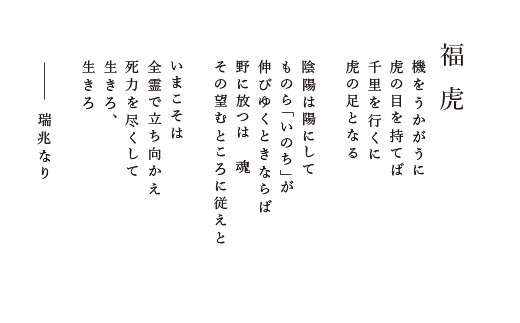 福虎
機をうかがうに
虎の目を持てば
千里を行くに
虎の足となる
陰陽は陽にして
ものら「いのち」が
伸びゆくときならば
野に放つは　魂
その望むところに従えと
いまこそは
全霊で立ち向かえ
死力を尽くして
生きろ、
生きろ
―― 瑞兆なり